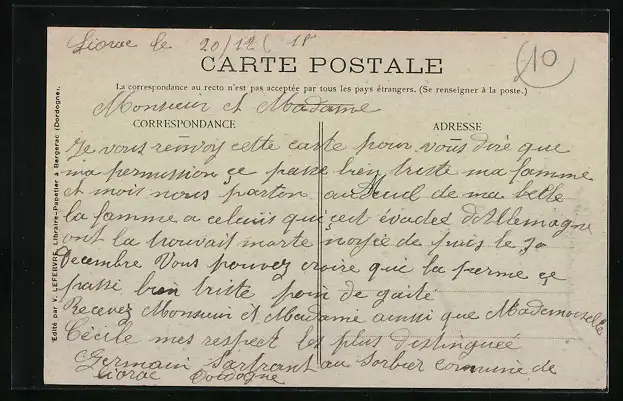 Liorac le 20/12/18
10
CARTE POSTALE
La correspondance au recto n'est pas acceptée par tous les pays étrangers. (Se renseigner à la poste.)
Monsieur et Madame
CORRESPONDANCE
ADRESSE
Je vous renvoy cette carte pour vous dire que
ma permission çe passe bien triste ma famme
et moit nous parton au Deuil de ma belle
la famme a celuis qui çest évadée d'Allemagne
ont la trouvait morte noyée de puis le 10
Decembre Vous pouvez croire que la perme çe
passe bien triste poin de gaité
Recevez Monsieur et Madame ainsi que Mademoiselle
Cécile mes respect les plus distinguée
Germain au Sorbier Comune de
Liorac Dordogne
Edité par V. LEFEBVRE, Libraire-Papetier à Bergerac (Dordogne).